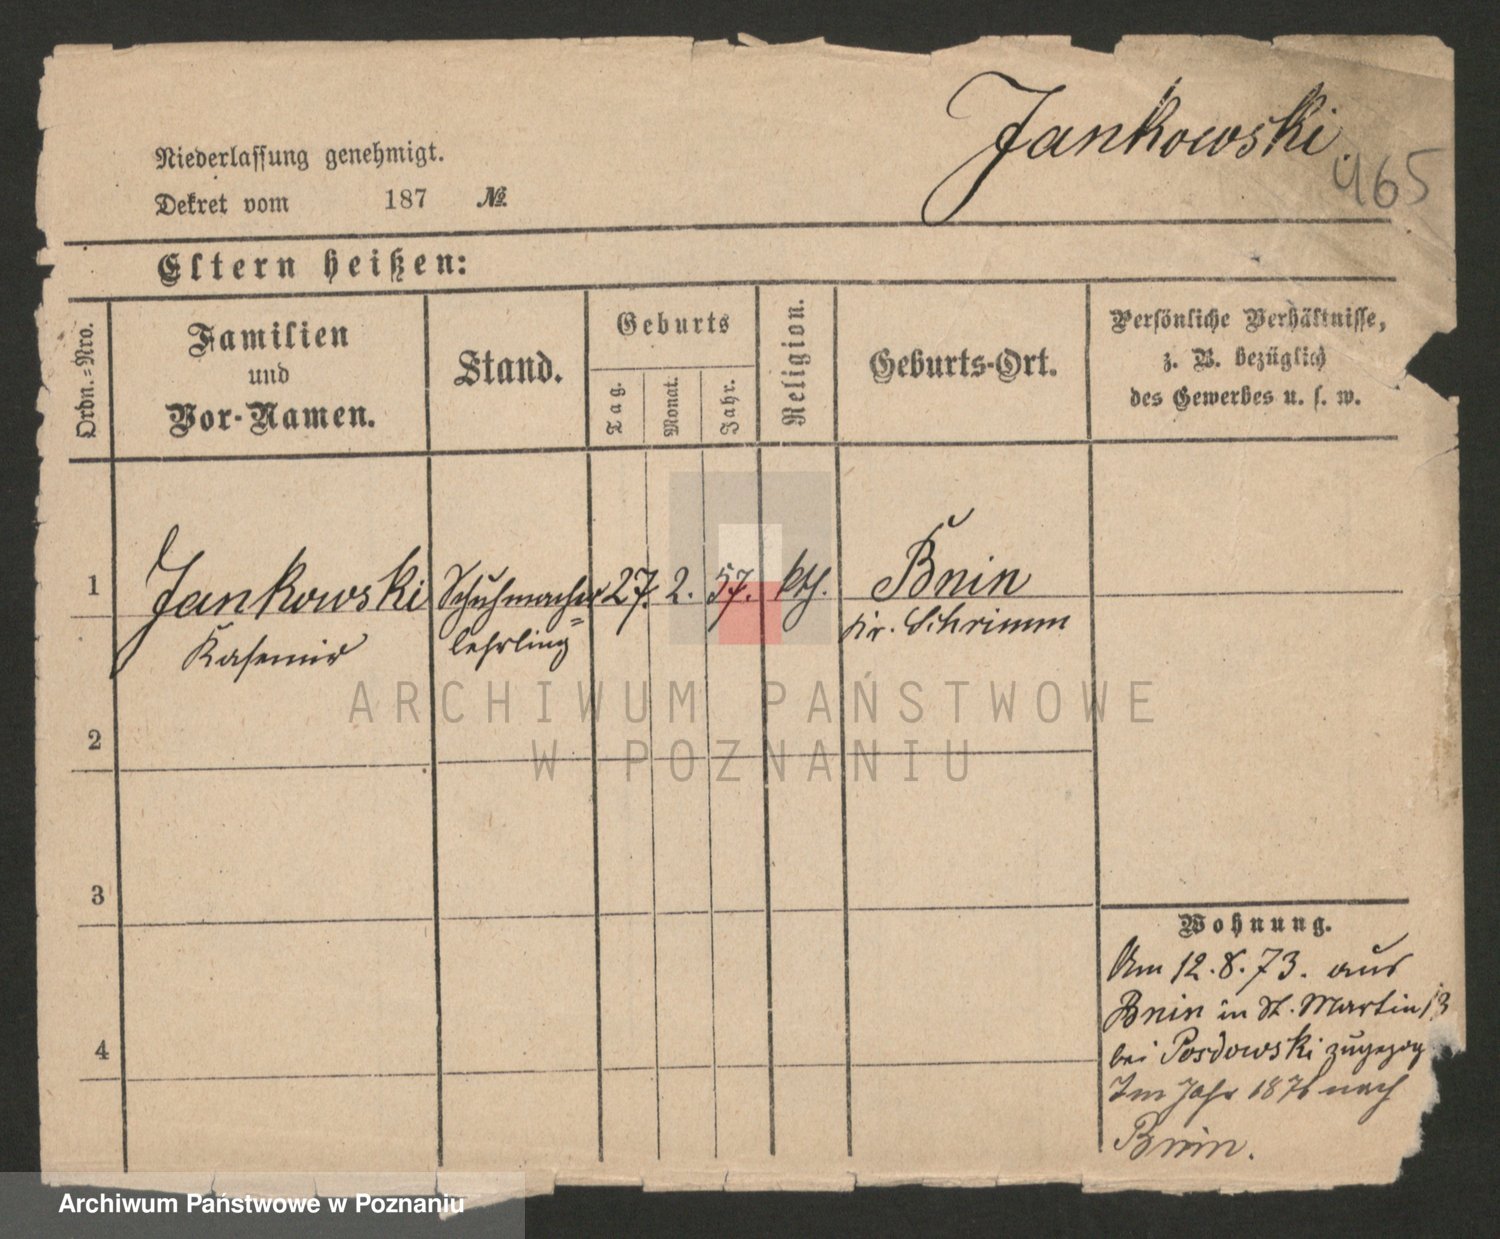 Jankowski.
465
Niederlassung genehmigt.
Dekret vom 187 №
Eltern heißen:
Ordn.=Nro.
Familien
und
Vor-Namen.
Stand.
Geburts
Tag.
Monat.
Jahr.
Religion.
Geburts-Ort.
Persönliche Verhältnisse,
z. B. bezüglich
des Gewerbes u. s. w.
1 Jankowski Schuhmacher 27. 2. 57. kth. Bnin
Kasemir lehrling Kr. Schrimm
2
3
4
Wohnung.
Am 12.8.73. aus
Bnin in St. Martin 13
bei Posdowski zugezog
Im Jahr 1876 nach
Bnin.
ARCHIWUM PAŃSTWOWE
W POZNANIU
Archiwum Państwowe w Poznaniu